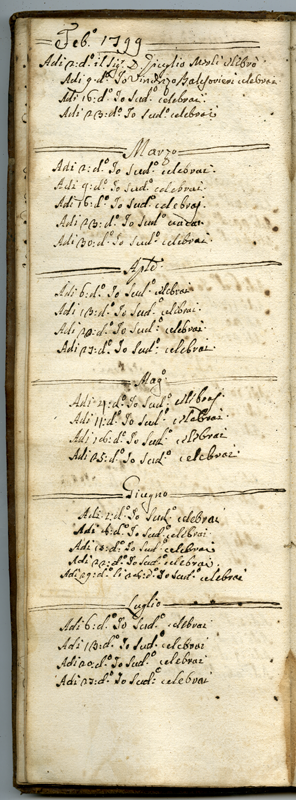 Feb.º 1799
Adi 2: d.º il Sig.r D. Giuglio celebrò
Adi 9: d.º Io Vincenzo Balestrieri celebrai
Adi 16: d.º Io Sud.º celebrai
Adi 23: d.º Io Sud.º celebrai
Marzo
Adi 2: d.º Io Sud.º celebrai
Adi 9: d.º Io Sud.º celebrai
Adi 16: d.º Io Sud.º celebrai
Adi 23: d.º Io Sud.º
Adi 30: d.º Io Sud.º celebrai
Aple
Adi 6: d.º Io Sud.º celebrai
Adi 13: d.º Io Sud.º celebrai
Adi 20: d.º Io Sud.º celebrai
Adi 27: d.º Io Sud.º celebrai
Mag.º
Adi 4: d.º Io Sud.º celebrai
Adi 11: d.º Io Sud.º celebrai
Adi 18: d.º Io Sud.º celebrai
Adi 25: d.º Io Sud.º celebrai
Giugno
Adi 1: d.º Io Sud.º celebrai
Adi 8: d.º Io Sud.º celebrai
Adi 15: d.º Io Sud.º celebrai
Adi 22: d.º Io Sud.º celebrai
Adi 29: d.º Io Sud.º celebrai
Luglio
Adi 6: d.º Io Sud.º celebrai
Adi 13: d.º Io Sud.º celebrai
Adi 20: d.º Io Sud.º celebrai
Adi 27: d.º Io Sud.º celebrai